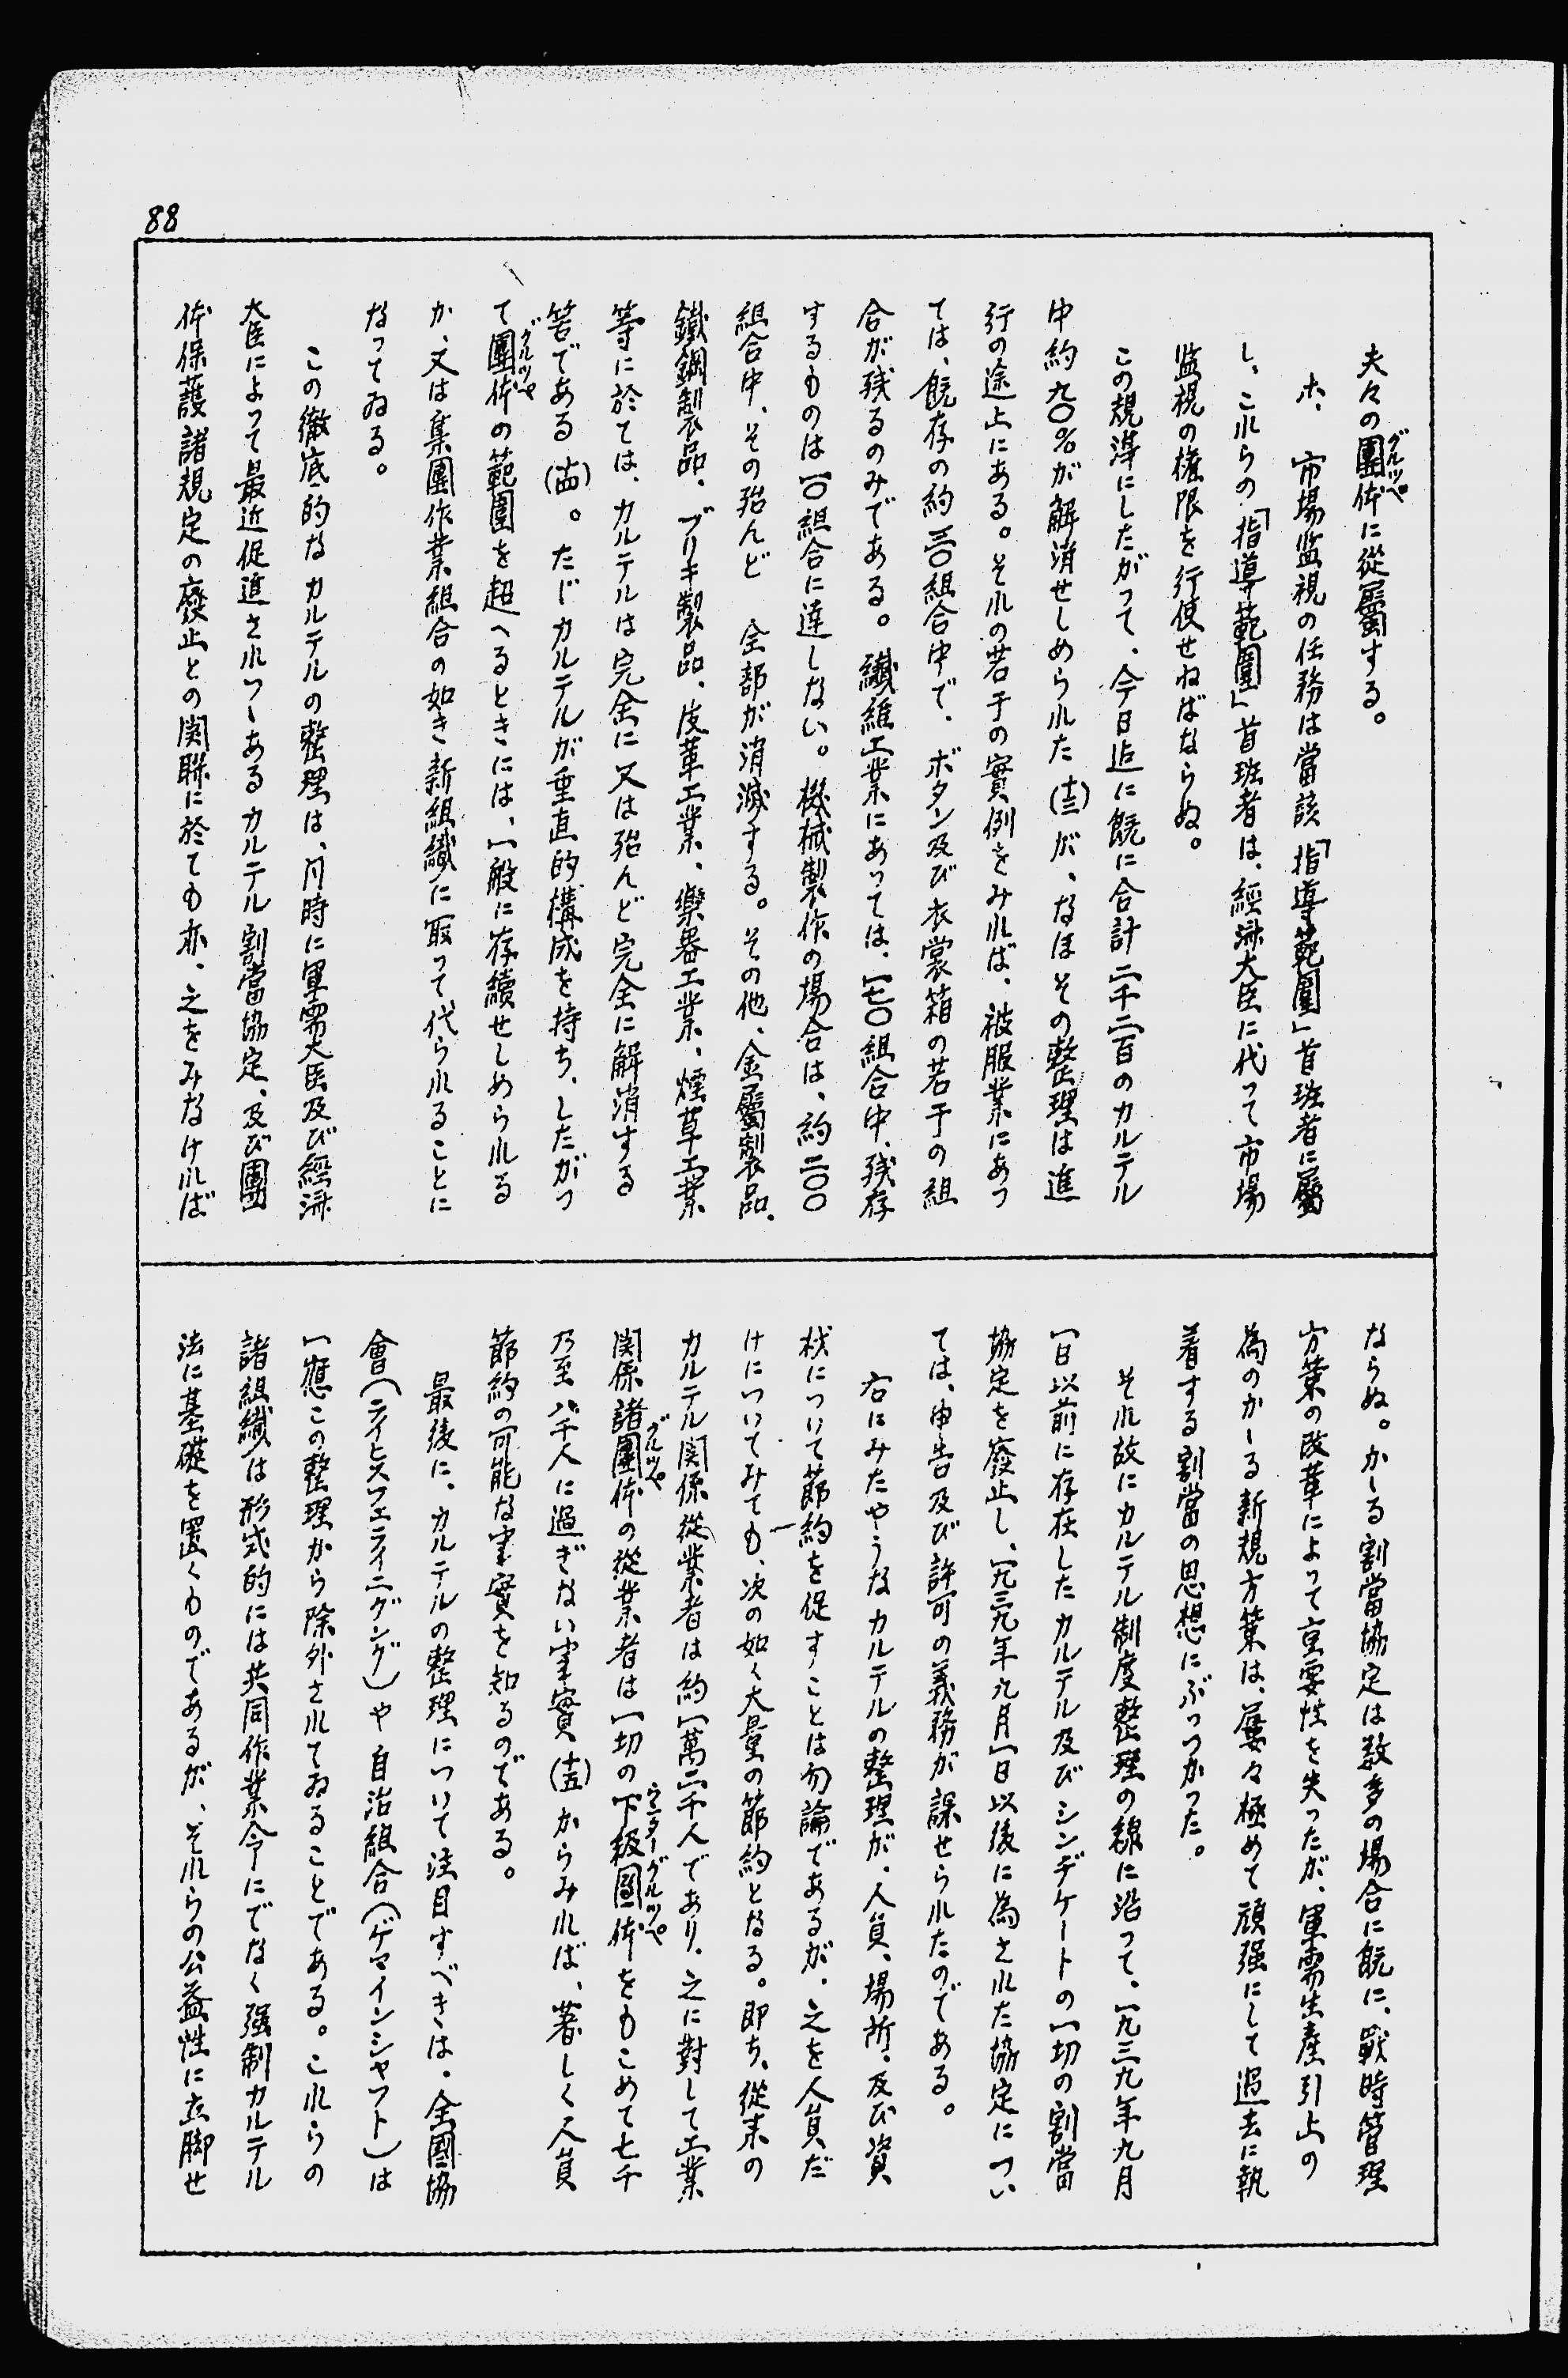 88
夫々の團体に從屬する。
グルッペ
ホ、市場监視の任務は當該「指導範圍」首班者に屬
し、これらの「指導範圍」首班者は、經済大臣に代って市場
监視の権限を行使せねばならぬ。
この規準にしたがって、今日迄に既に合計二千二百のカルテル
中約九〇％が解消せしめられた(十三)が、なほその整理は進
行の途上にある。それの若干の實例をみれば、被服業にあつ
ては、既存の約三〇組合中で、ボタン及び衣裳箱の若干の組
合が残るのみである。纎維工業にあっては、一七〇組合中、残存
するものは一〇組合に達しない。機械製作の場合は、約二〇〇
組合中、その殆んど全部が消滅する。その他、金屬製品、
鐵鋼製品、ブリキ製品、皮革工業、樂器工業、煙草工業
等に於ては、カルテルは完全に又は殆んど完全に解消する
筈である(十四)。たゞカルテルが垂直的構成を持ち、したがつ
て團体の範圍を超へるときには、一般に存續せしめられる
グルッペ
か、又は集團作業組合の如き新組織に取って代られることに
なってゐる。
この徹底的なカルテルの整理は、同時に軍需大臣及び經済
大臣によって最近促進されつゝあるカルテル割當協定、及び團
体保護諸規定の廢止との関聯に於ても亦、之をみなければ
ならぬ。かゝる割當協定は数多の場合に既に、戰時管理
方策の改革によって重要性を失ったが、軍需生產引上の
為のかゝる新規方策は、屡々極めて頑强にして過去に執
着する割當の思想にぶっつかった。
それ故にカルテル制度整理の線に沿って、一九三九年九月
一日以前に存在したカルテル及びシンヂケートの一切の割當
協定を廢止し、一九三九年九月一日以後に為された協定につい
ては、申告及び許可の義務が課せられたのである。
右にみたやうなカルテルの整理が、人員、場所、及び資
材について節約を促すことは勿論であるが、之を人員だ
けについてみても、次の如く大量の節約となる。即ち、從来の
カルテル関係從業者は約一萬二千人であり、之に對して工業
関係諸團体の從業者は一切の下級團体をもこめて七千
グルッペ
ウンターグルッペ
乃至八千人に過ぎない事實(十五)からみれば、著しく人員
節約の可能な事實を知るのである。
最後に、カルテルの整理について注目すべきは、全國協
會(ライヒスフェライニグング)や自治組合(ゲマインシャフト)は
一應この整理から除外されてゐることである。これらの
諸組織は形式的には共同作業令にでなく强制カルテル
法に基礎を置くものであるが、それらの公益性に立脚せ